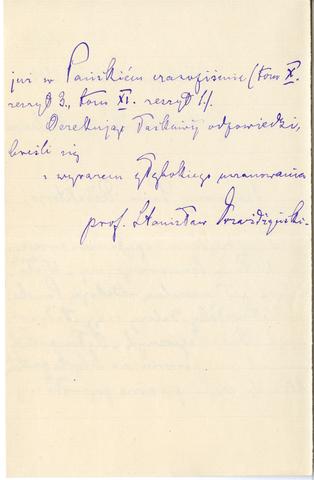 już w Pańskiém czasopiśmie (tom X.
zeszyt 3., tom XI. zeszyt 1.).
Oczekując łaskawej odpowiedzi,
kreśli się
z wyrazem głębokiego uszanowania
prof. Stanisław